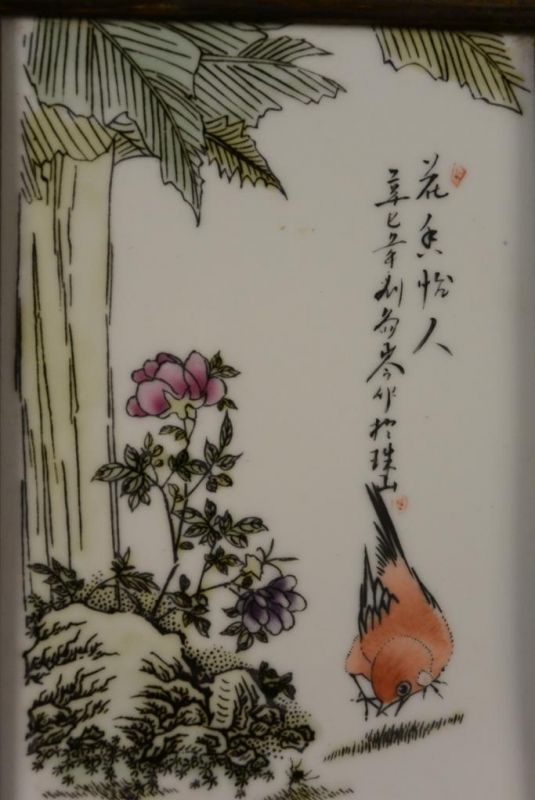 花香怡人
辛巳年刘雨岑作於珠山